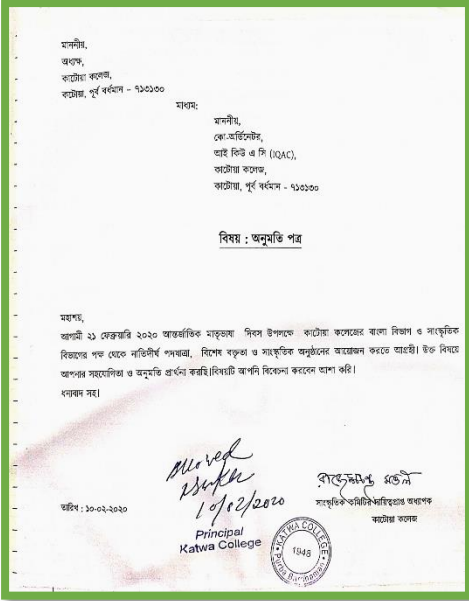 মাননীয়,
অধ্যক্ষ,
কাটোয়া কলেজ,
কাটোয়া, পূর্ব বর্ধমান – ৭১৩১৩০
মাধ্যম:
মাননীয়,
কো-অর্ডিনেটর,
আই কিউ এ সি (IQAC),
কাটোয়া কলেজ,
কাটোয়া, পূর্ব বর্ধমান - ৭১৩১৩০
বিষয় : অনুমতি পত্র
মহাশয়,
আগামী ২১ ফেব্রুয়ারি ২০২০ আন্তর্জাতিক মাতৃভাষা দিবস উপলক্ষে কাটোয়া কলেজের বাংলা বিভাগ ও সাংস্কৃতিক
বিভাগের পক্ষ থেকে নাতিদীর্ঘ পদযাত্রা, বিশেষ বক্তৃতা ও সাংস্কৃতিক অনুষ্ঠানের আয়োজন করতে আগ্রহী। উক্ত বিষয়ে
আপনার সহযোগিতা ও অনুমতি প্রার্থনা করছি।বিষয়টি আপনি বিবেচনা করবেন আশা করি।
ধন্যবাদ সহ।
10/02/2020
Principal
Katwa College
তারিখ : ১০-০২-২০২০
মণ্ডল
সাংস্কৃতিক কমিটির দায়িত্বপ্রাপ্ত অধ্যাপক
কাটোয়া কলেজ
KATWA COLLEGE
1948